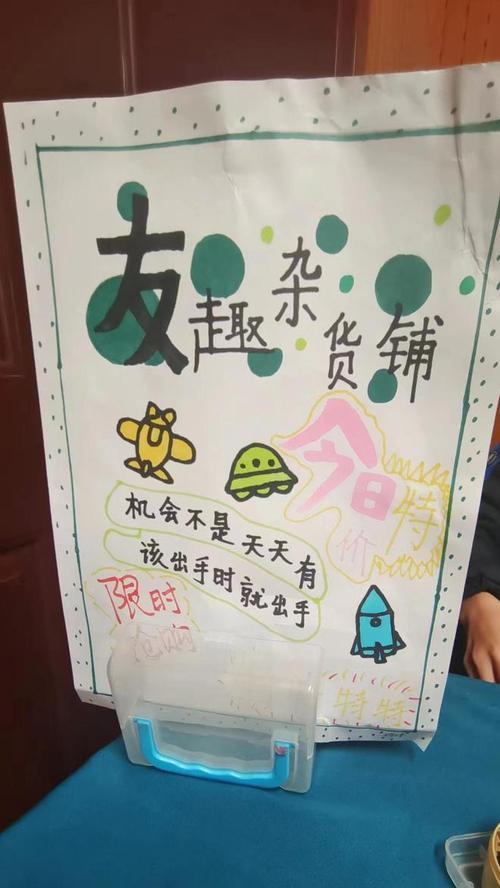 友趣杂货铺
今日特价
机会不是天天有
该出手时就出手
限时
抢购
特特